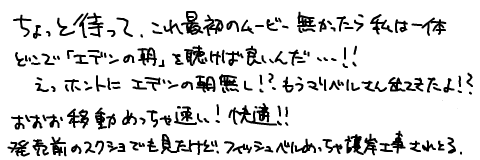 ちょっと待って、これ最初のムービー無かったら私は一体
どこで「エデンの朝」を聴けば良いんだ…!!
えっホントにエデンの朝無し!?もうマリベルさん出てきたよ!?
おおお移動めっちゃ速い!快適!!
発売前のスクショでも見たけど、フィッシュベルめっちゃ護岸工事されとる.